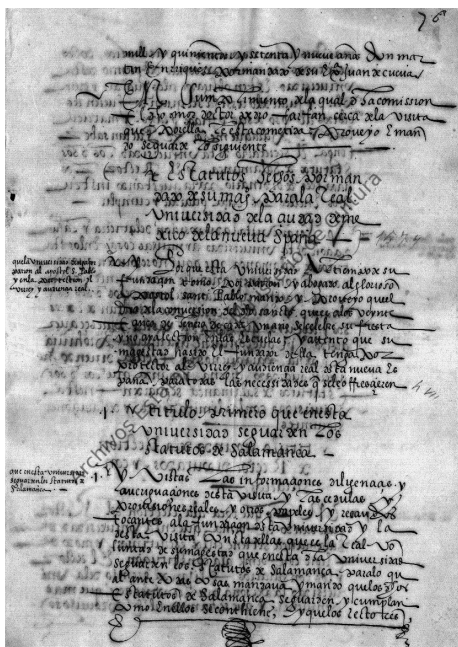 76
mill y quinientos y setenta y nueve años Don mar
tin Enrriquez por mandado de su Ex.ª Juan de cueva
En cumplimiento de la qual dha comission
El dho señor doctor pedro farfan, cerca de la visita
que por ella se esta cometida, Proveyo E man
do se guarde lo siguiente
Estatutos fechos por man
dado de su mag. para la Real
Universidad de la ciudad de me
xico de la nueva Spaña
que la Universidad
al apostol S. Pablo
y en la protection al
Virrey y audiencia real
Por que esta Universidad
fundaçion tomo por patron y abogado al glorioso
apostol sant Pablo, mando y proveyo que el
dia de la conversion del dho sancto, que es a los veynte
y cinco de henero de cada un año, se celebre su fiesta
y no aya lection en las Escuelas, y attento que su
magestad nuestro s.r fundador della, tenga por
protector al Virrey y audiencia real desta nueva Es
paña, para todas las necessidades que se le offrescieren
Titulo primero que en esta
Universidad se guarden los
statutos de Salamanca
que en esta Universidad
se guarden los statutos de
Salamanca
Y Vistas las informaciones diligencias, y
averiguaciones desta visita y las cedulas y
provisiones reales, y otros papeles y recaudos
tocantes a la fundaçion desta Universidad y la
desta visita
luntad de su magestad que en esta dha Universidad
se guarden los statutos de Salamanca, por lo qu
al ante todas cosas mandava, y mando que los dhos
Estatutos de Salamanca se guarden, y cumplan
como en ellos se contiene, y que los rectores
Archivos